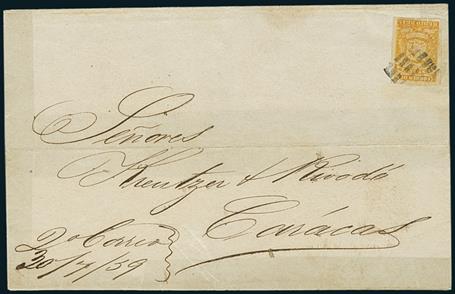 Señores
Kreutzer & Rivodó
Carácas
2º Correo
20/7/59